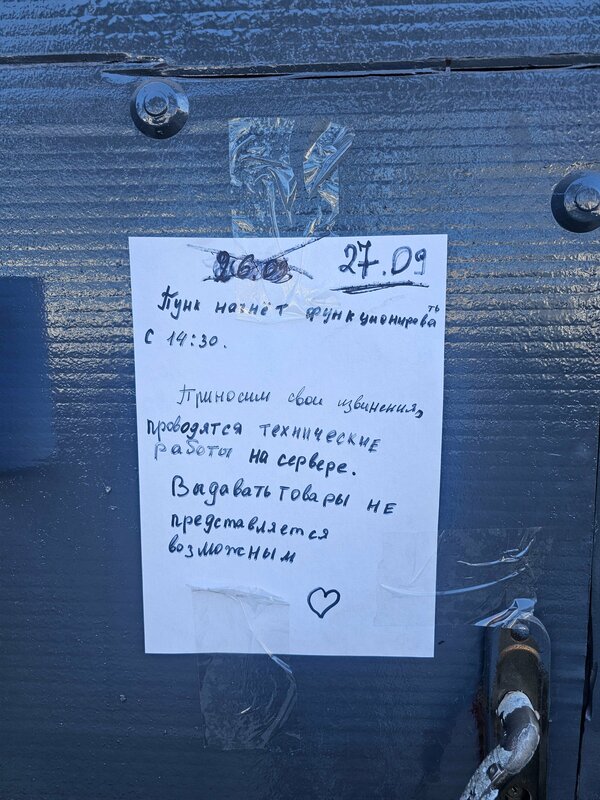 27.09
Пунк начнёт функционировать
с 14:30.
Приносим свои извинения,
проводятся технические
работы на сервере.
Выдавать товары не
представляется
возможным